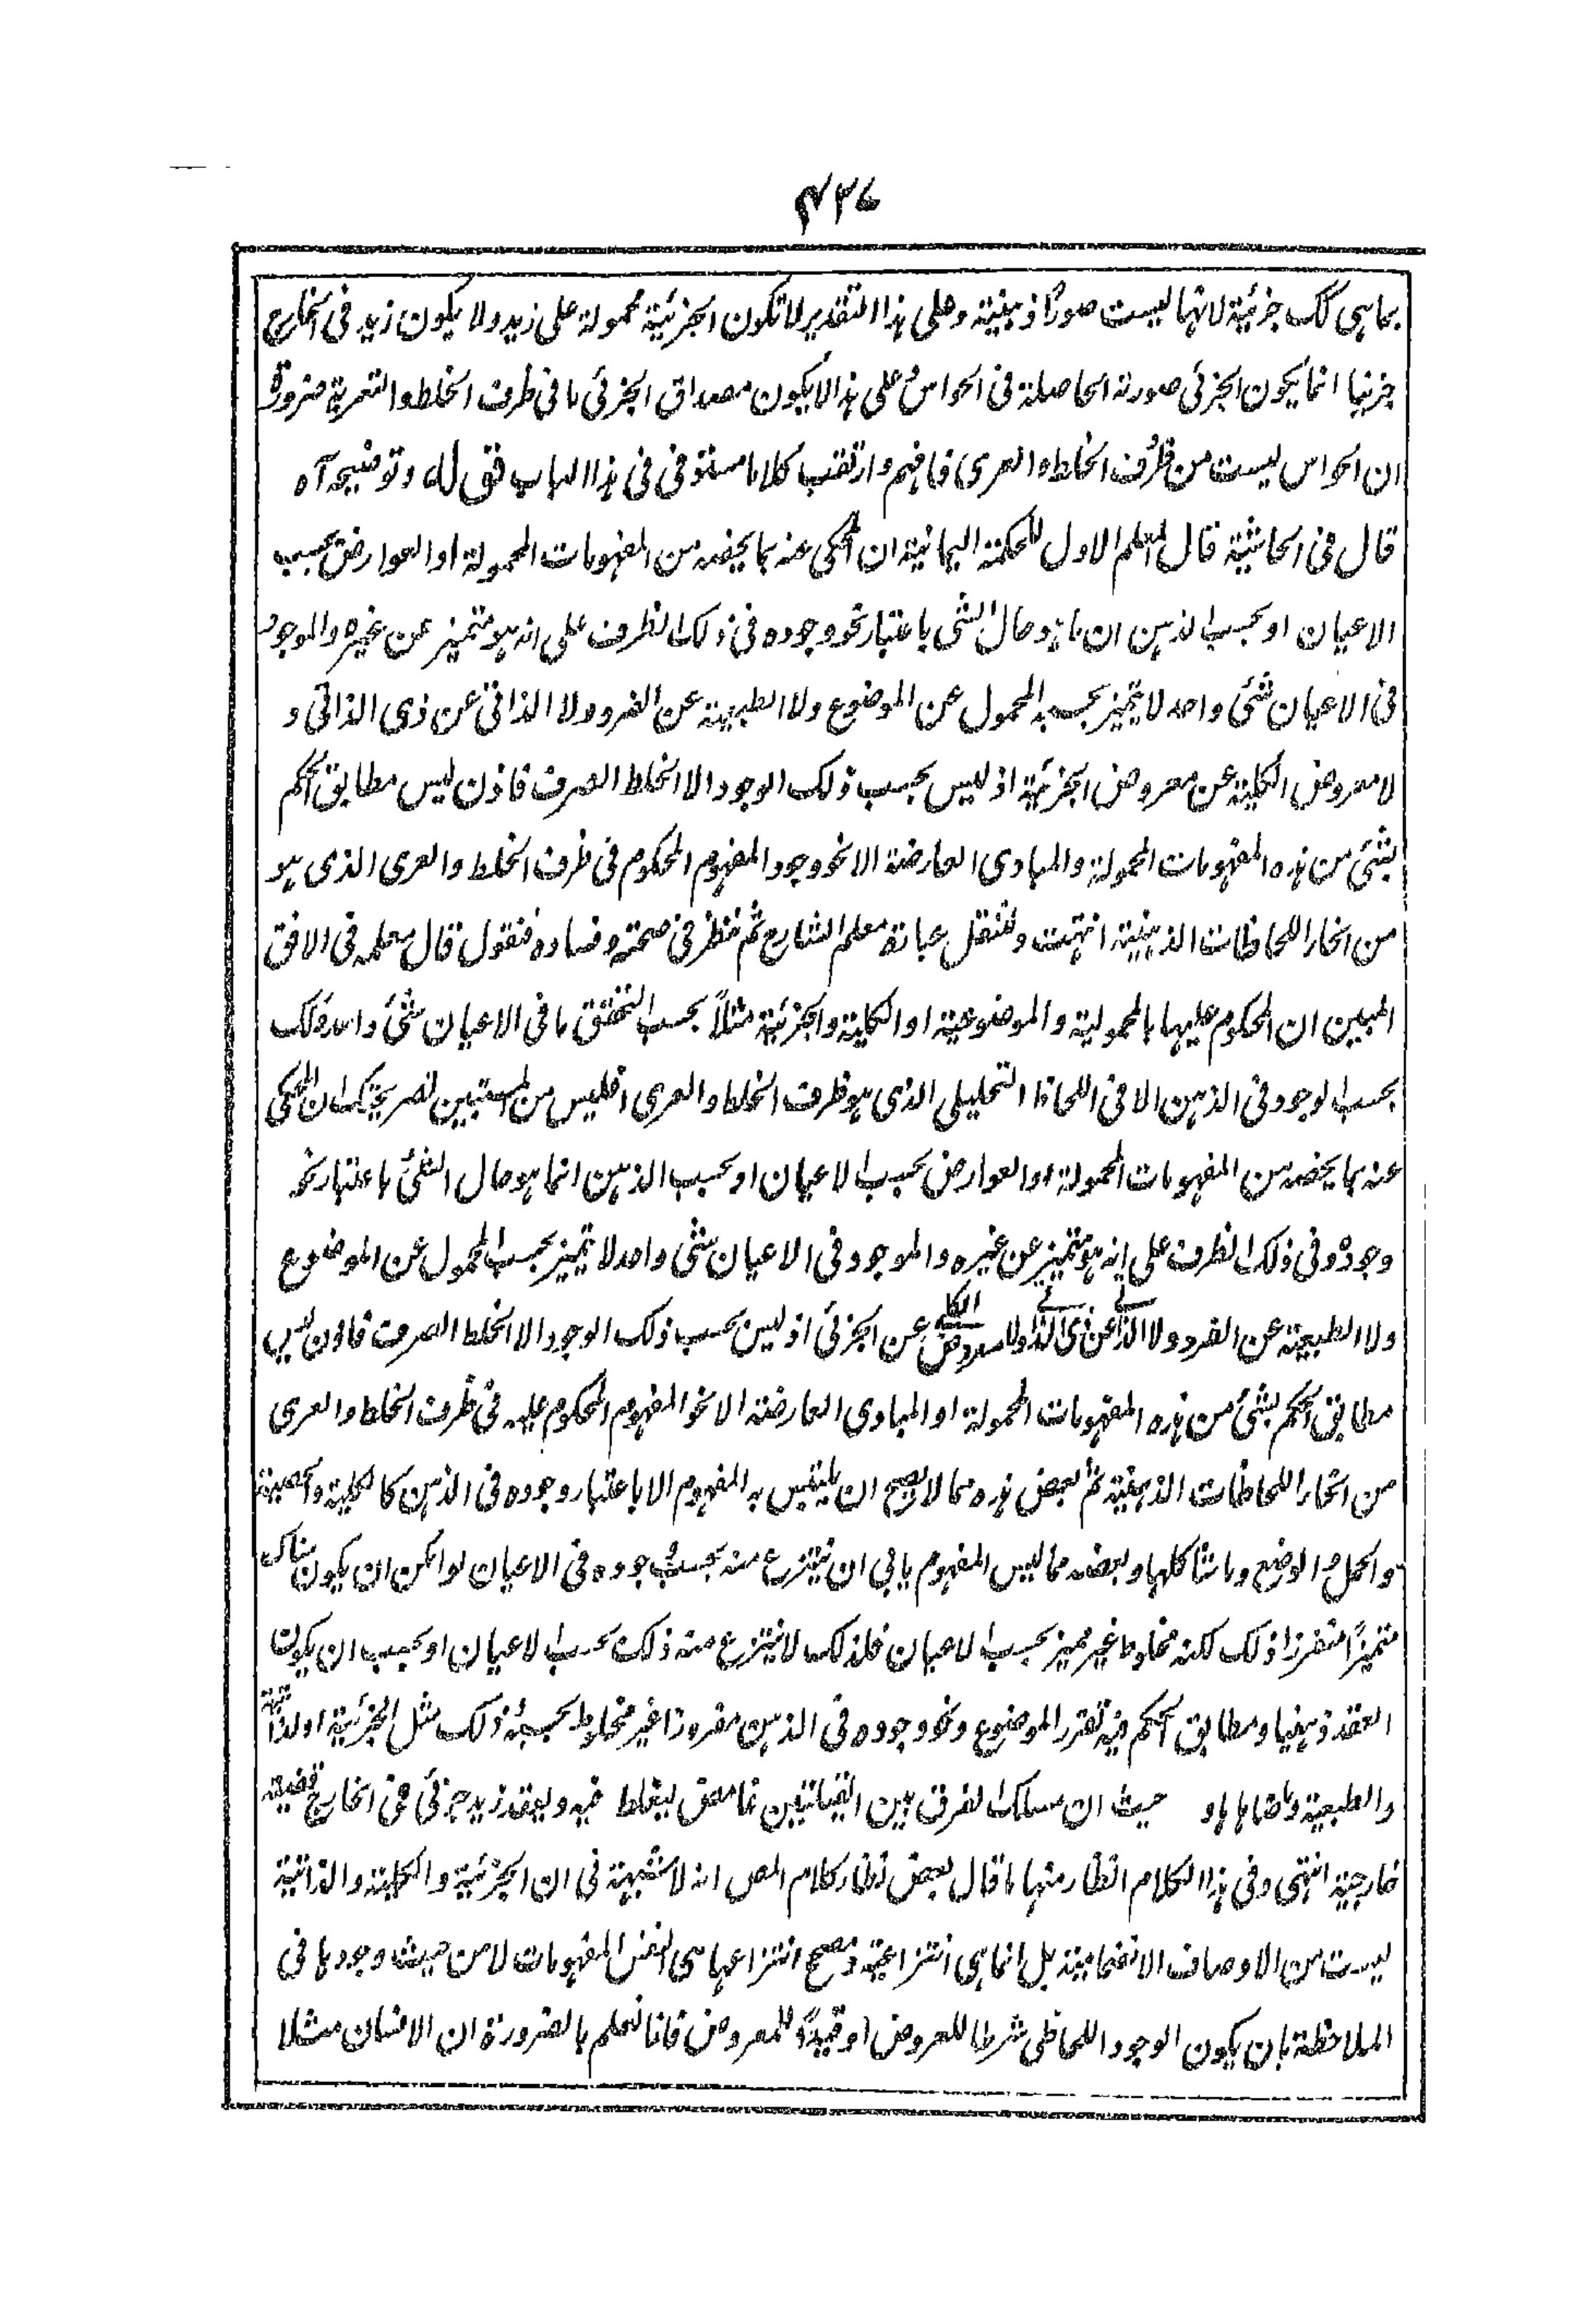 ٤٣٧
بما هی کک جزئیة لانها لیست صورًا ذهنیة وعلی هذا التقدیر لا تکون الجزئیة محمولة علی زید ولا یکون زید فی الخارج
جزئیا انما یکون الجزئی صورته الحاصلة فی الحواس وعلی هذا لا یکون مصداق الجزئی ما فی ظرف الخلط والتعریة ضرورة
ان الحواس لیست من ظرف الخلط والعری فافهم وارتقب کلاما مستوفی فی هذا الباب قوله وتوضیحه آه
قال فی الحاشیة قال المعلم الاول للحکمة الیمانیة ان المحکی عنه بما یخصه من المفهومات المحمولة او العوارض بحسب
الاعیان او بحسب الذهن ان ما هو حال الشی باعتبار نحو وجوده فی ذلک الظرف علی انه هو متمیز عن غیره والموجود
فی الاعیان شئ واحد لا یتمیز بحسبه المحمول عن الموضوع ولا الطبیعة عن الفرد ولا الذاتی عن ذی الذاتی و
لا معروض الکلیة عن معروض الجزئیة اذ لیس بحسب ذلک الوجود الا الخلط الصرف فاذن لیس مطابق الحکم
بشئ من هذه المفهومات المحمولة والمبادی العارضة الا نحو وجود المفهوم المحکوم فی ظرف الخلط والعری الذی هو
من انحار اللحاظات الذهنیة انتهت ولننقل عبارة معلم الشارح ثم ننظر فی صحته وفساده فنقول قال معلمه فی الافق
المبین ان المحکوم علیها بالمحمولیة والموضوعیة او الکلیة والجزئیة مثلاً بحسب التحقق ما فی الاعیان شئ واحد وکذلک
بحسب الوجود فی الذهن الا فی اللحاظ التحلیلی الذی هو ظرف الخلط والعری افلیس من المستبین لصریحتک ان المحکی
عنه بما یخصه من المفهومات المحمولة او العوارض بحسب الاعیان او بحسب الذهن انما هو حال الشئ باعتبار نحو
وجوده فی ذلک الظرف علی انه هو متمیز عن غیره والموجود فی الاعیان شئ واحد لا یتمیز بحسب المحمول عن الموضوع
ولا الطبیعة عن الفرد ولا الذاتی عن ذی الذاتی ولا معروض الکلیة عن الجزئی اذ لیس بحسب ذلک الوجود الا الخلط الصرف فاذن لیس
مطابق الحکم بشئ من هذه المفهومات المحمولة او المبادی العارضة الا نحو المفهوم المحکوم علیه فی ظرف الخلط والعری
من انحار اللحاظات الذهنیة ثم بعض هذه مما لا یصح ان یلتبس به المفهوم الا باعتبار وجوده فی الذهن کالکلیة والجنسیة
والحمل والوضع وما شاکلها وبعضه مما لیس المفهوم یابی ان ینتزع منه بحسب وجوده فی الاعیان لو امکن ان یکون هناک
متمیزًا متفرزا ذلک لکنه مخلوط غیر ممیز بحسب الاعیان فلذلک لا ینتزع منه ذلک بحسب الاعیان او بحسب ان یکون
العقد ذهنیا ومطابق الحکم فیه تقرر الموضوع ونحو وجوده فی الذهن مفروزا غیر مخلوط بحسبه ذلک مثل الجزئیة او الذاتیة
والطبیعیة وما ضاهاها و حیث ان مسلک الفرق بین القبیلتین غامض لیغلط فیه ویعقد زید جزئی فی الخارج قضیة
خارجیة انتهی وفی هذا الکلام انظار منها ما قال بعض نظار کلام المص انه لا شبهة فی ان الجزئیة والکلیة والذاتیة
لیست من الاوصاف الانضمامیة بل انما هی انتزاعیة ومصحح انتزاعها هی انفس المفهومات لا من حیث وجودها فی
الملاحظة بان یکون الوجود اللحاظی شرطا للعروض او قیدًا للمعروض فانا نعلم بالضرورة ان الانسان مثلا